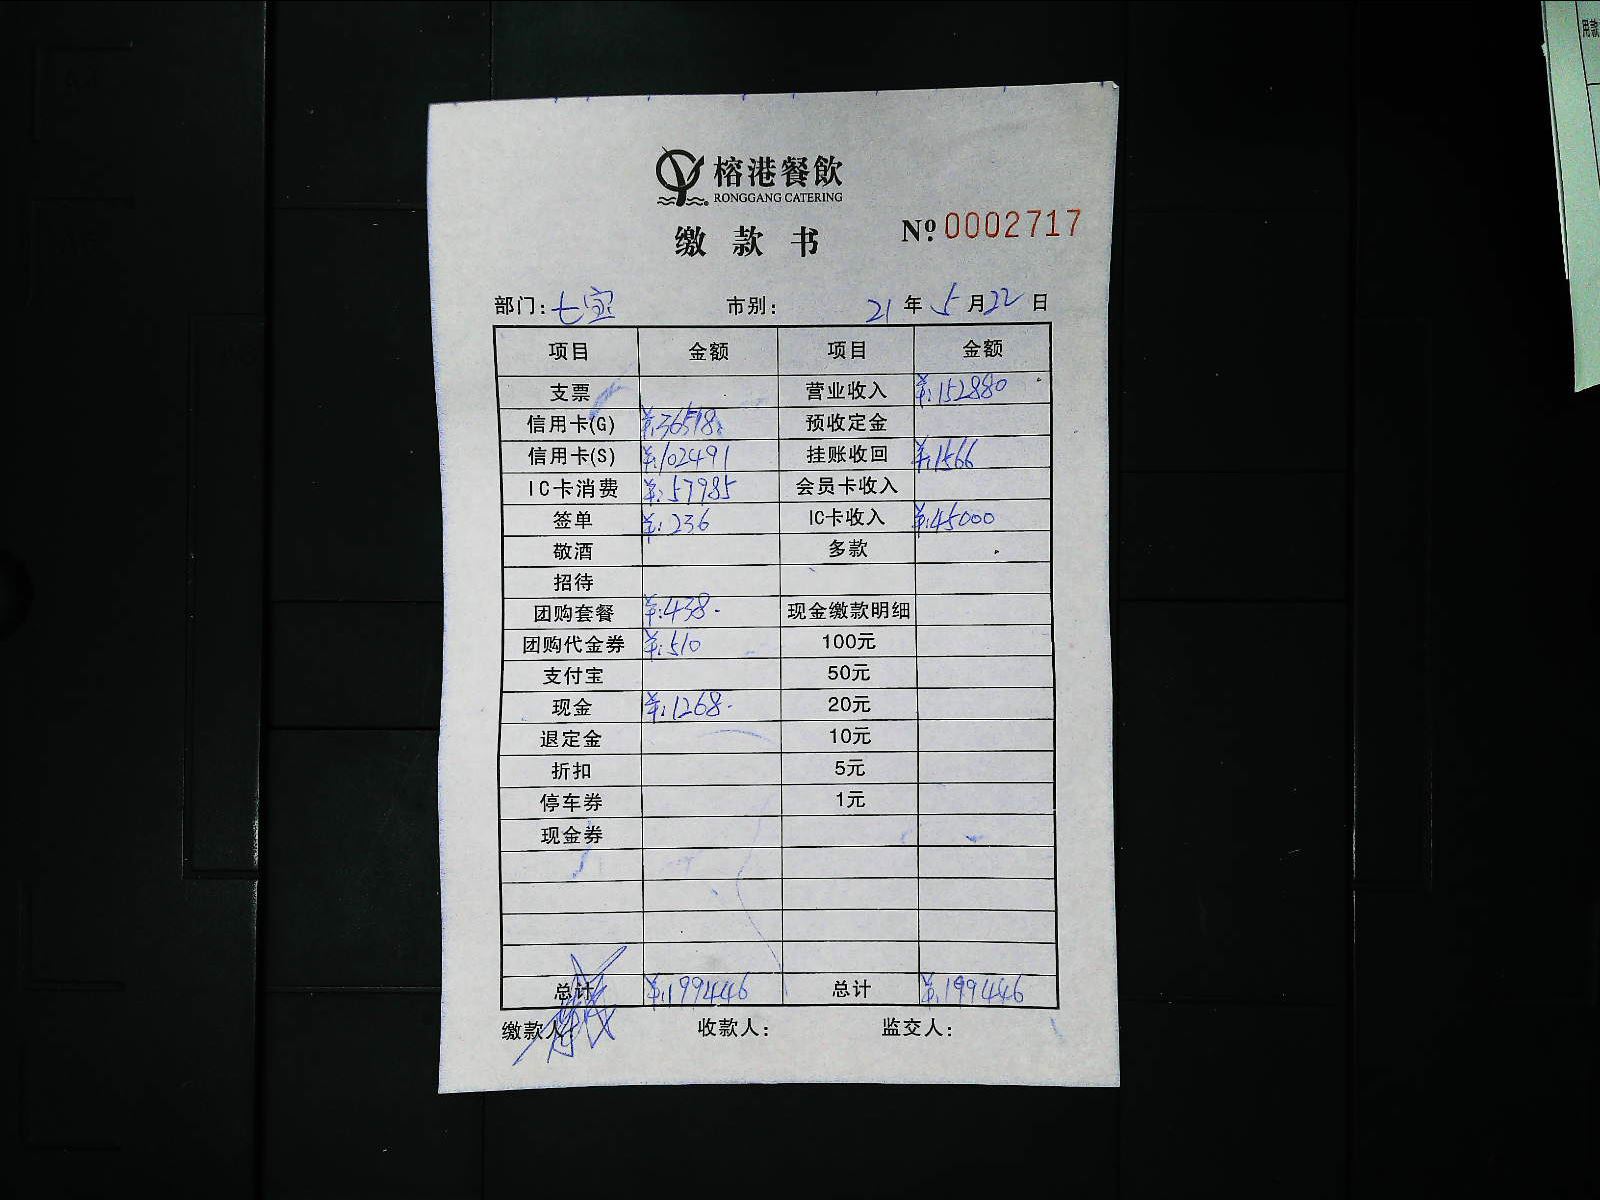 榕港餐飲
RONGGANG CATERING
缴款书
№ 0002717
部门: 七宝 市别: 21年5月22日
项目 金额 项目 金额
支票 营业收入 ¥:152880
信用卡(G) ¥:36518 预收定金
信用卡(S) ¥:102491 挂账收回 ¥:1566
IC卡消费 ¥:57985 会员卡收入
签单 ¥:236 IC卡收入 ¥:45000
敬酒 多款
招待
团购套餐 ¥:438 现金缴款明细
团购代金券 ¥:510 100元
支付宝 50元
现金 ¥:1268 20元
退定金 10元
折扣 5元
停车券 1元
现金券
总计 ¥:199446 总计 ¥:199446
缴款人: 收款人: 监交人:
用款